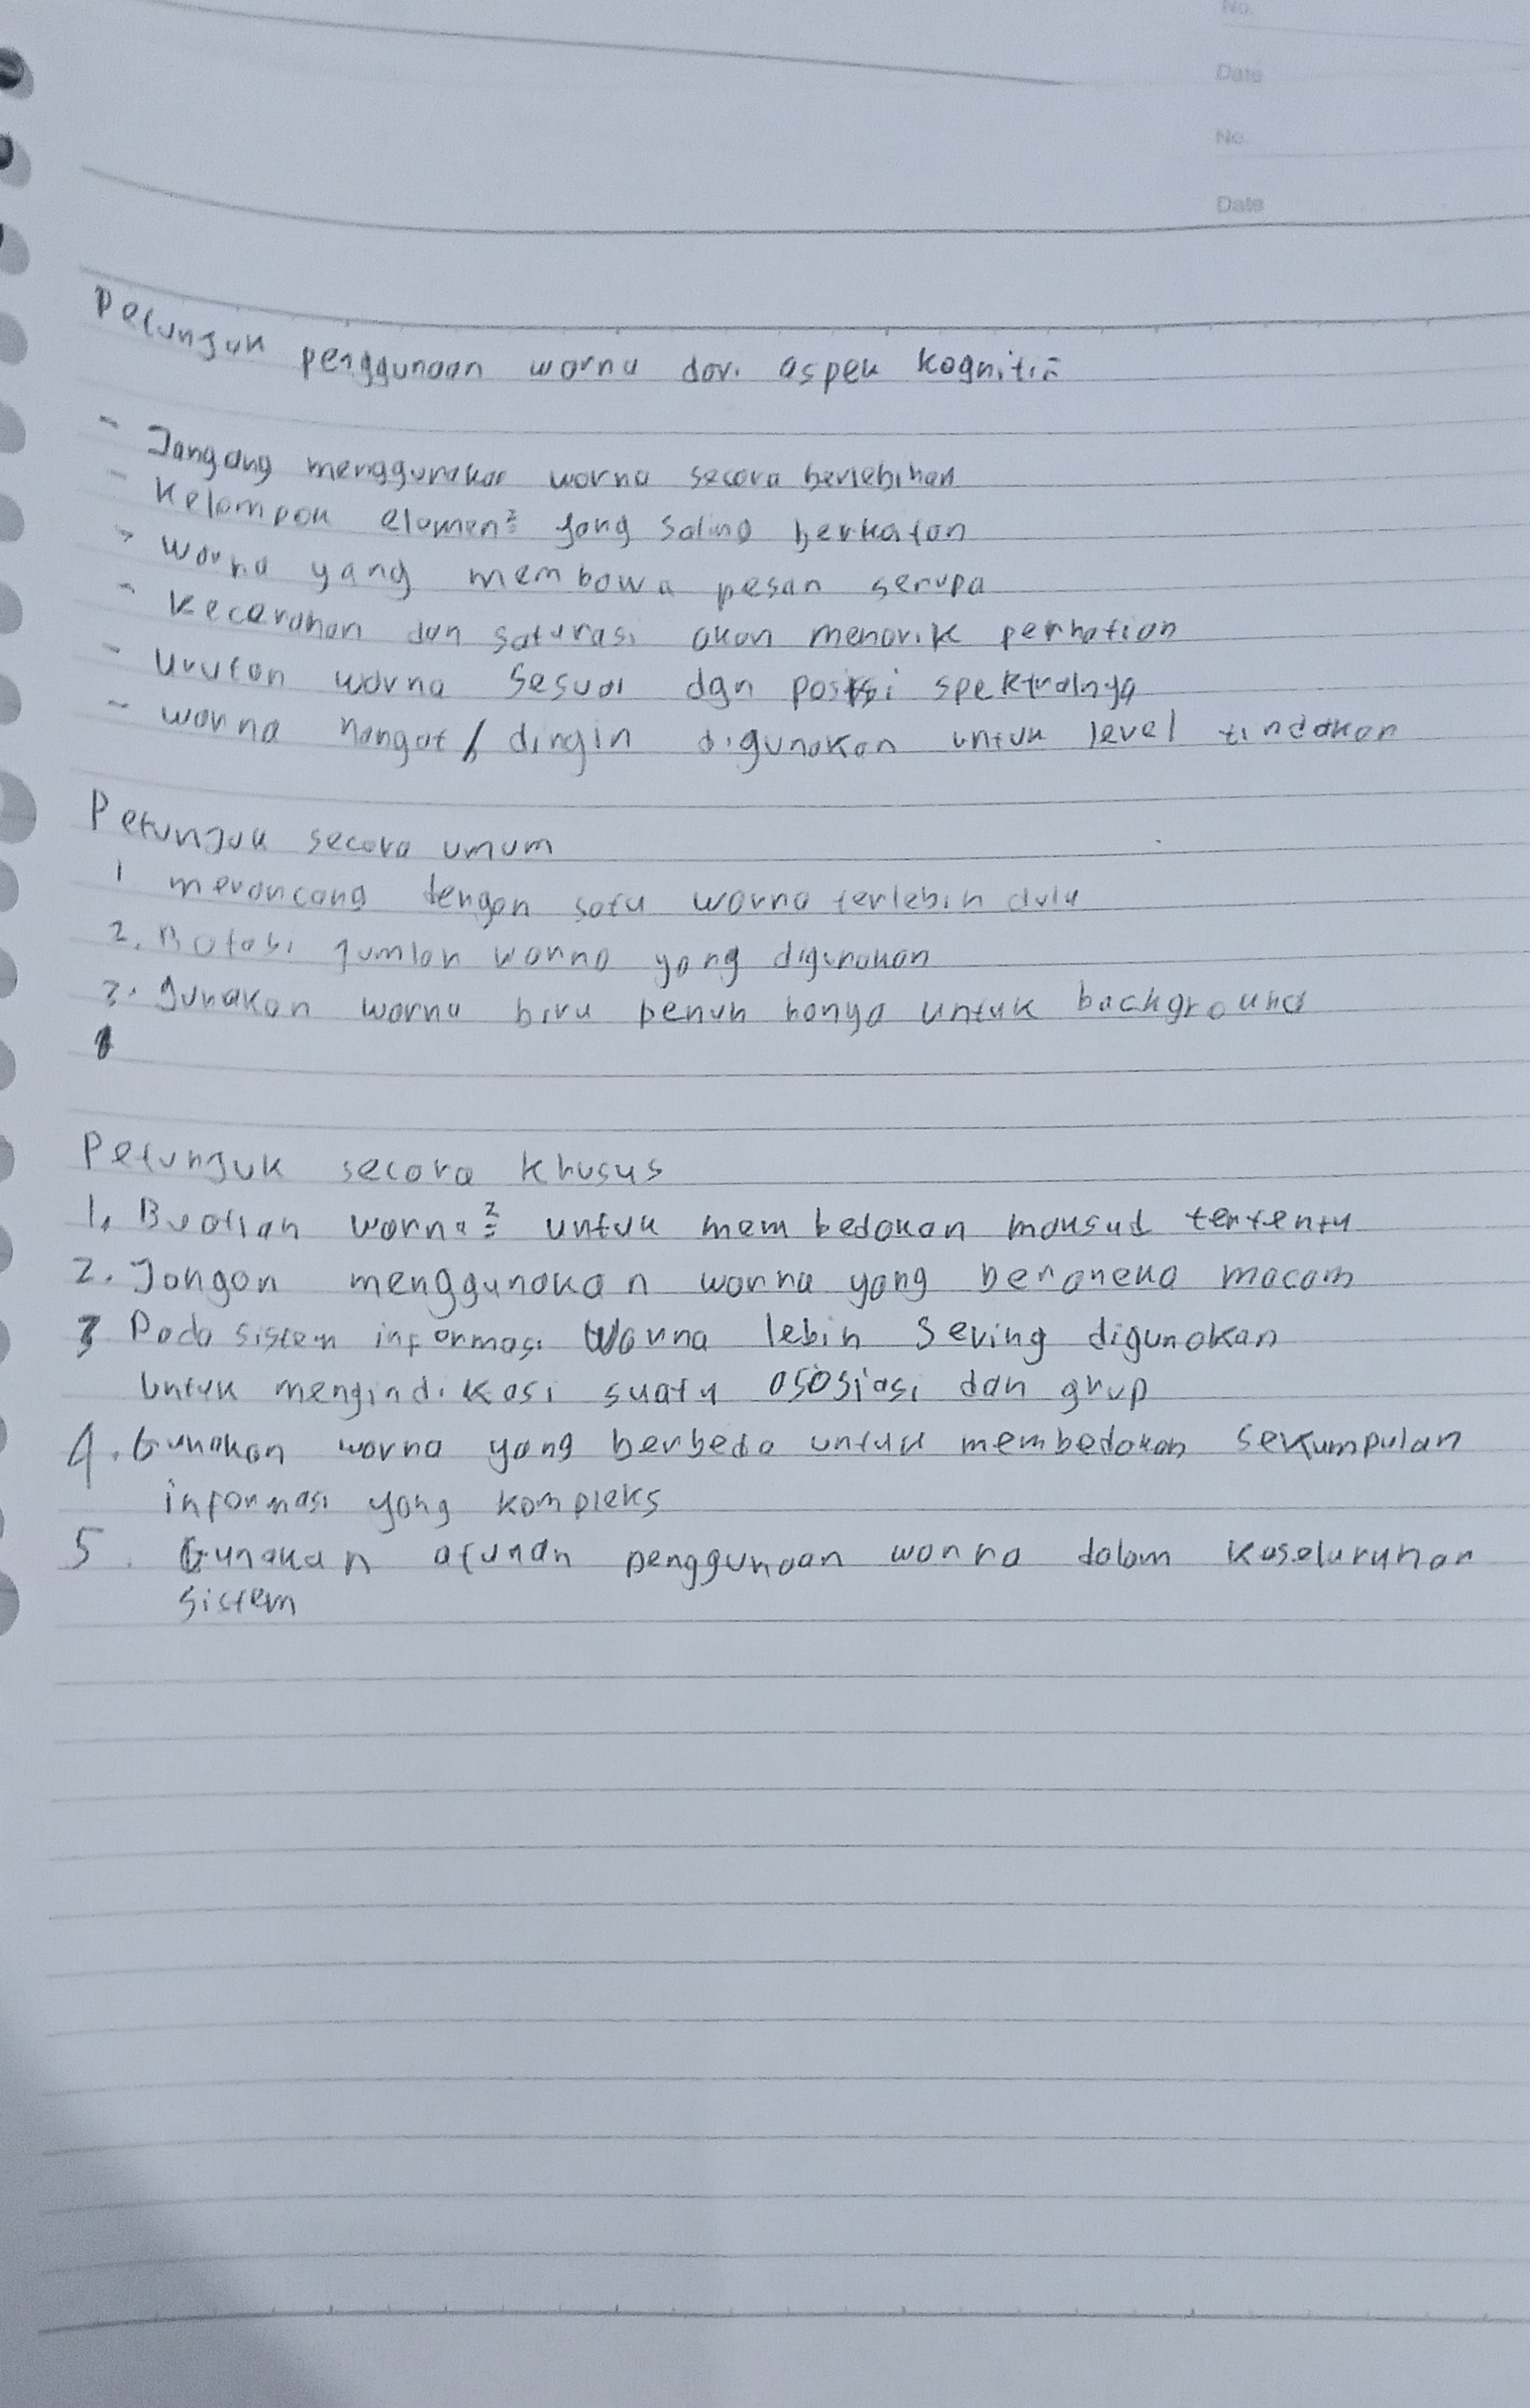 No.
Date
No.
Date
Petunjuk penggunaan warna dari aspek kognitif
- Jangang menggunakan warna secara berlebihan
- Kelompok elemen² yang saling berkatan
- Warna yang membawa pesan serupa
- Kecerahan dan saturasi akan menarik perhatian
- Urutan warna sesuai dgn posisi spektralnya
- warna hangat / dingin digunakan untuk level tindakan
Petunjuk secara umum
1 merancang dengan satu warna terlebih dulu
2. Batasi jumlah warna yang digunakan
3. gunakan warna biru penuh hanya untuk background
Petunjuk secara khusus
1. Buatlah warna² untuk membedakan maksud tertentu
2. Jangan menggunakan warna yang beraneka macam
3 Pada sistem informasi Warna lebih sering digunakan
untuk mengindikasi suatu asosiasi dan grup
4. Gunakan warna yang berbeda untuk membedakan sekumpulan
informasi yang kompleks
5. Gunakan aturan penggunaan warna dalam keseluruhan
sistem